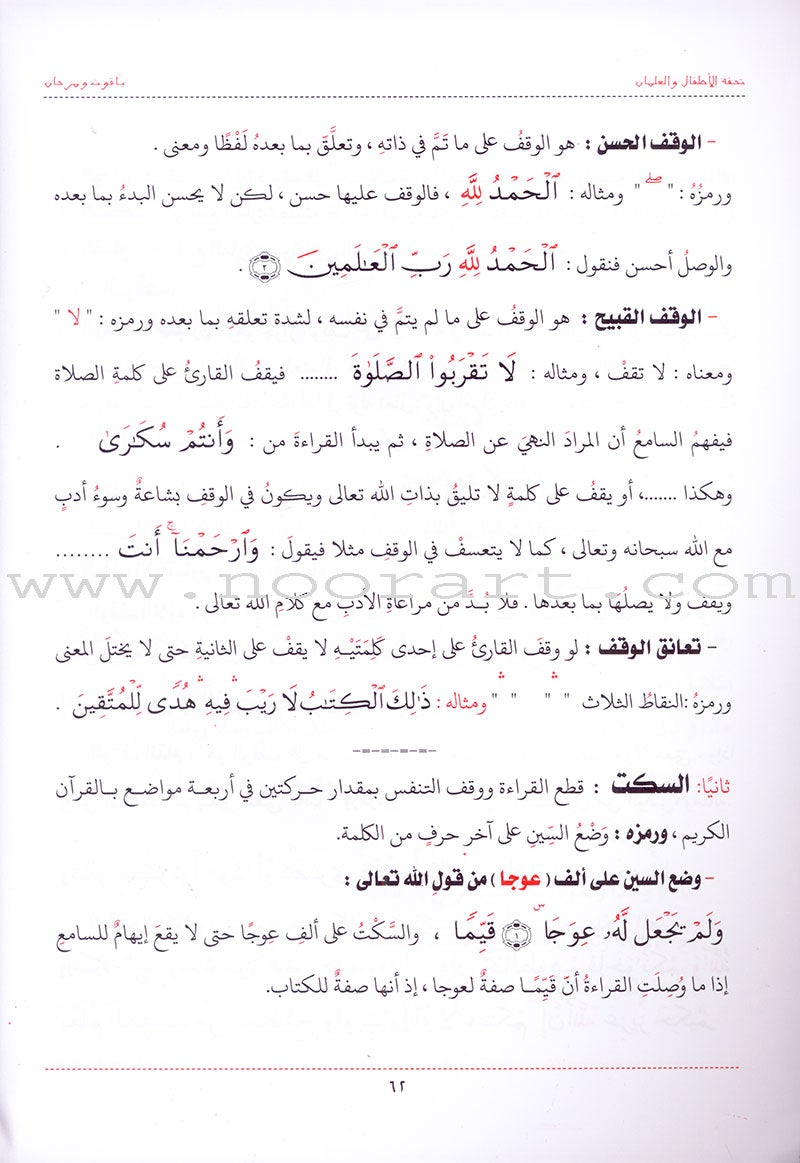 تحفة الأطفال والغلمان
ياقوت ومرجان
- الوقف الحسن : هو الوقفُ على ما تَمَّ في ذاتهِ ، وتعلَّقَ بما بعدهُ لَفْظًا ومعنى .
ورمزُهُ : " صلے " ومثاله : ٱلْحَمْدُ لِلَّهِ ، فالوقف عليها حسن ، لكن لا يحسن البدءُ بما بعده
والوصلُ أحسن فنقول : ٱلْحَمْدُ لِلَّهِ رَبِّ ٱلْعَـٰلَمِينَ ٢ .
- الوقف القبيح : هو الوقفُ على ما لم يتمَّ في نفسه ، لشدة تعلقهِ بما بعده ورمزه : " لا "
ومعناه : لا تقفْ ، ومثاله : لَا تَقْرَبُوا۟ ٱلصَّلَوٰةَ ....... فيقفُ القارئُ على كلمةِ الصلاة
فيفهمُ السامعُ أن المرادَ النهيَ عن الصلاةِ ، ثم يبدأ القراءةَ من : وَأَنتُمْ سُكَـٰرَىٰ .
وهكذا .......، أو يقفُ على كلمةٍ لا تليقُ بذاتِ الله تعالى ويكونُ في الوقفِ بشاعةٌ وسوءُ أدبٍ
مع الله سبحانه وتعالى ، كما لا يتعسفْ في الوقفِ مثلا فيقولَ : وَٱرْحَمْنَآ ۚ أَنتَ ........
www.noorart.com
ويقف ولا يصلُها بما بعدها . فلا بُـدَّ من مراعاةِ الأدبِ مع كلامِ الله تعالى .
- تعانق الوقف : لو وقفَ القارئُ على إحدى كَلِمَتَيْـهِ لا يقفْ على الثانيةِ حتى لا يختلَ المعنى
ورمزهُ :النقاطُ الثلاث " ۛ " " ۛ " ومثاله : ذَٰلِكَ ٱلْكِتَـٰبُ لَا رَيْبَ ۛ فِيهِ ۛ هُدًى لِّلْمُتَّقِينَ .
-=-=-=-=-=-
ثانيًا: السكت : قطع القراءة ووقف التنفس بمقدار حـركتين في أربعـة مواضـع بـالقرآن
الكريم ، ورمزه : وَضْعُ السِّينِ على آخر حرفٍ من الكلمة.
- وضع السين على ألف ( عوجا ) من قولِ الله تعالى :
وَلَمْ يَجْعَل لَّهُۥ عِوَجَا ۜ ١ قَيِّمًا ، والسَّكْتُ على ألفِ عِوجًا حتى لا يقعَ إيهامٌ للسامعِ
إذا ما وُصِلَتِ القراءةُ أنّ قَيِّمًـا صفةٌ لعوجا ، إذ أنها صفةٌ للكتاب.
٦٢